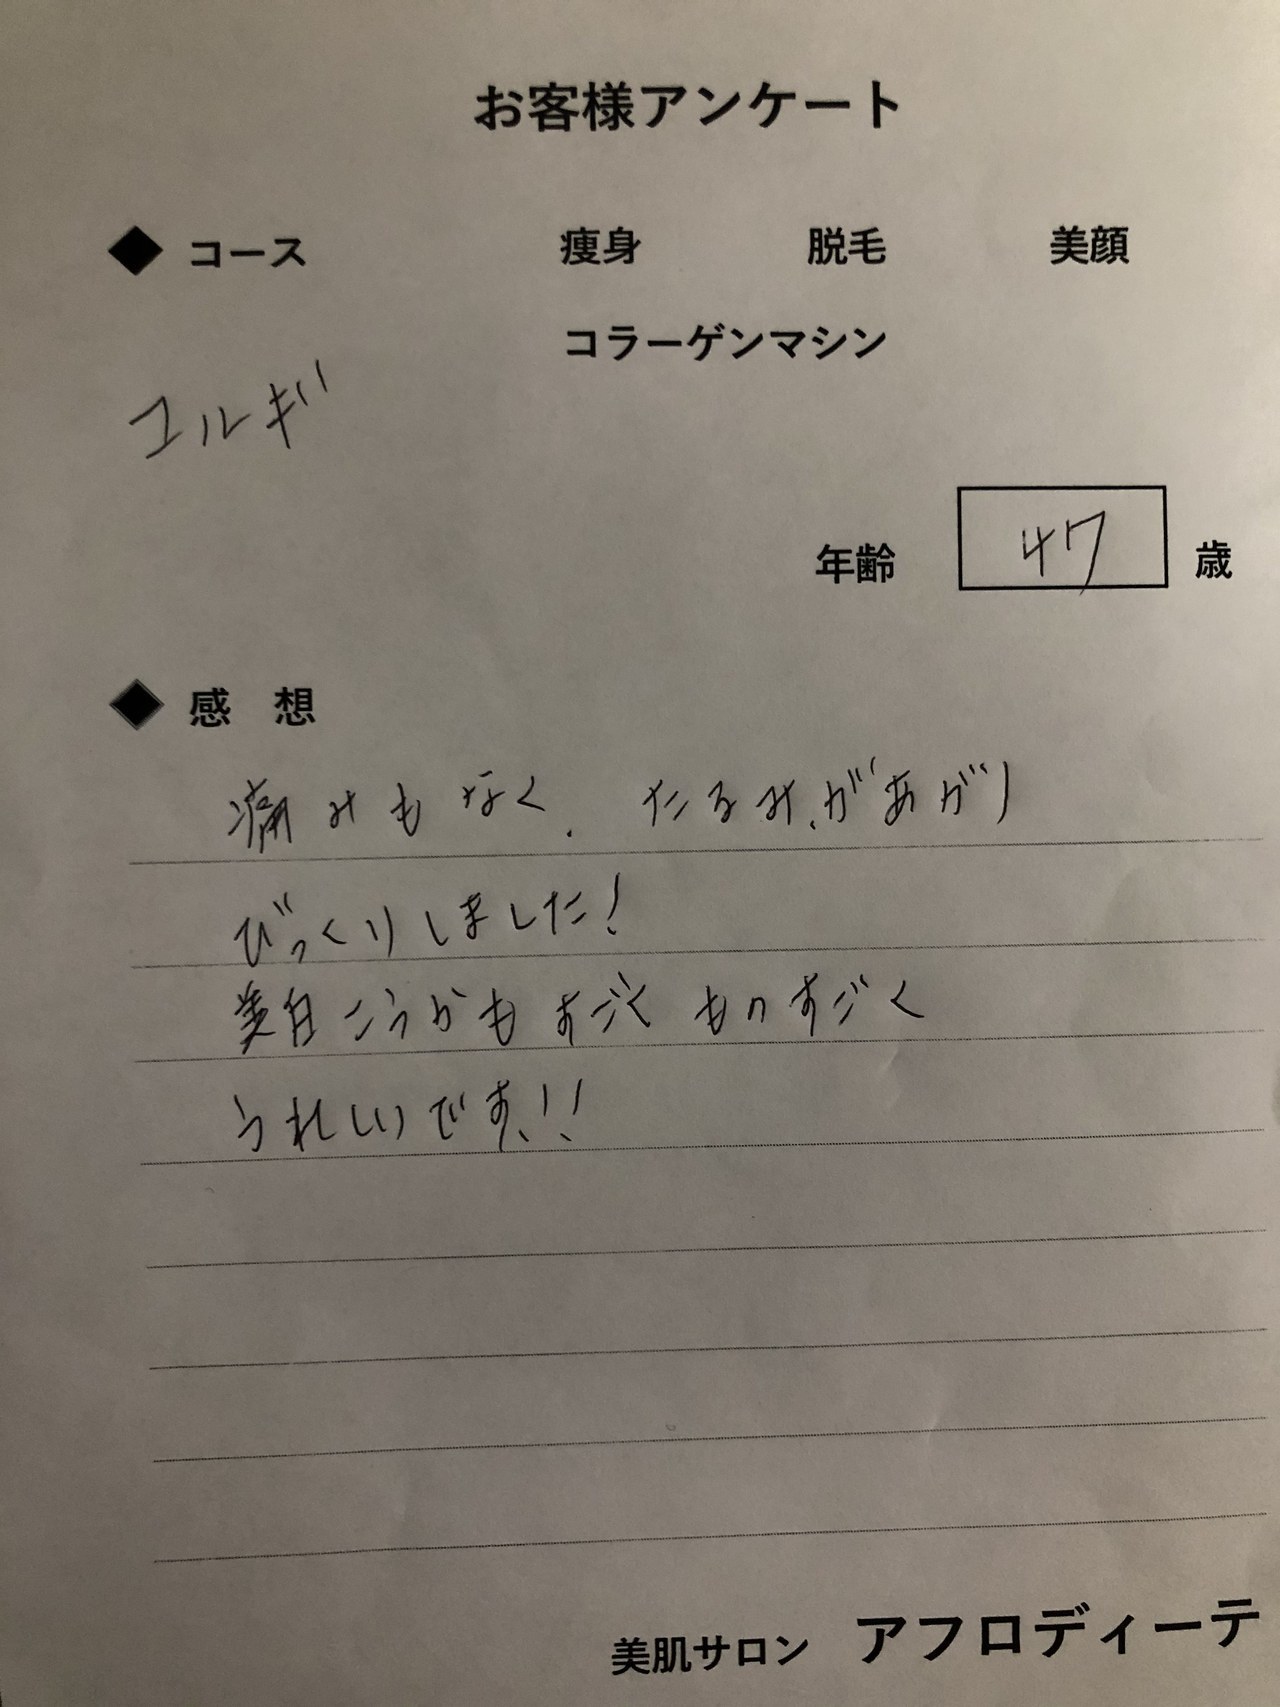 お客様アンケート
◆ コース 痩身 脱毛 美顔
コラーゲンマシン
コルギ
年齢 47 歳
◆ 感 想
痛みもなく、たるみがあがり
びっくりしました!
美白こうかもすごく ものすごく
うれしいです!!
美肌サロン アフロディーテ